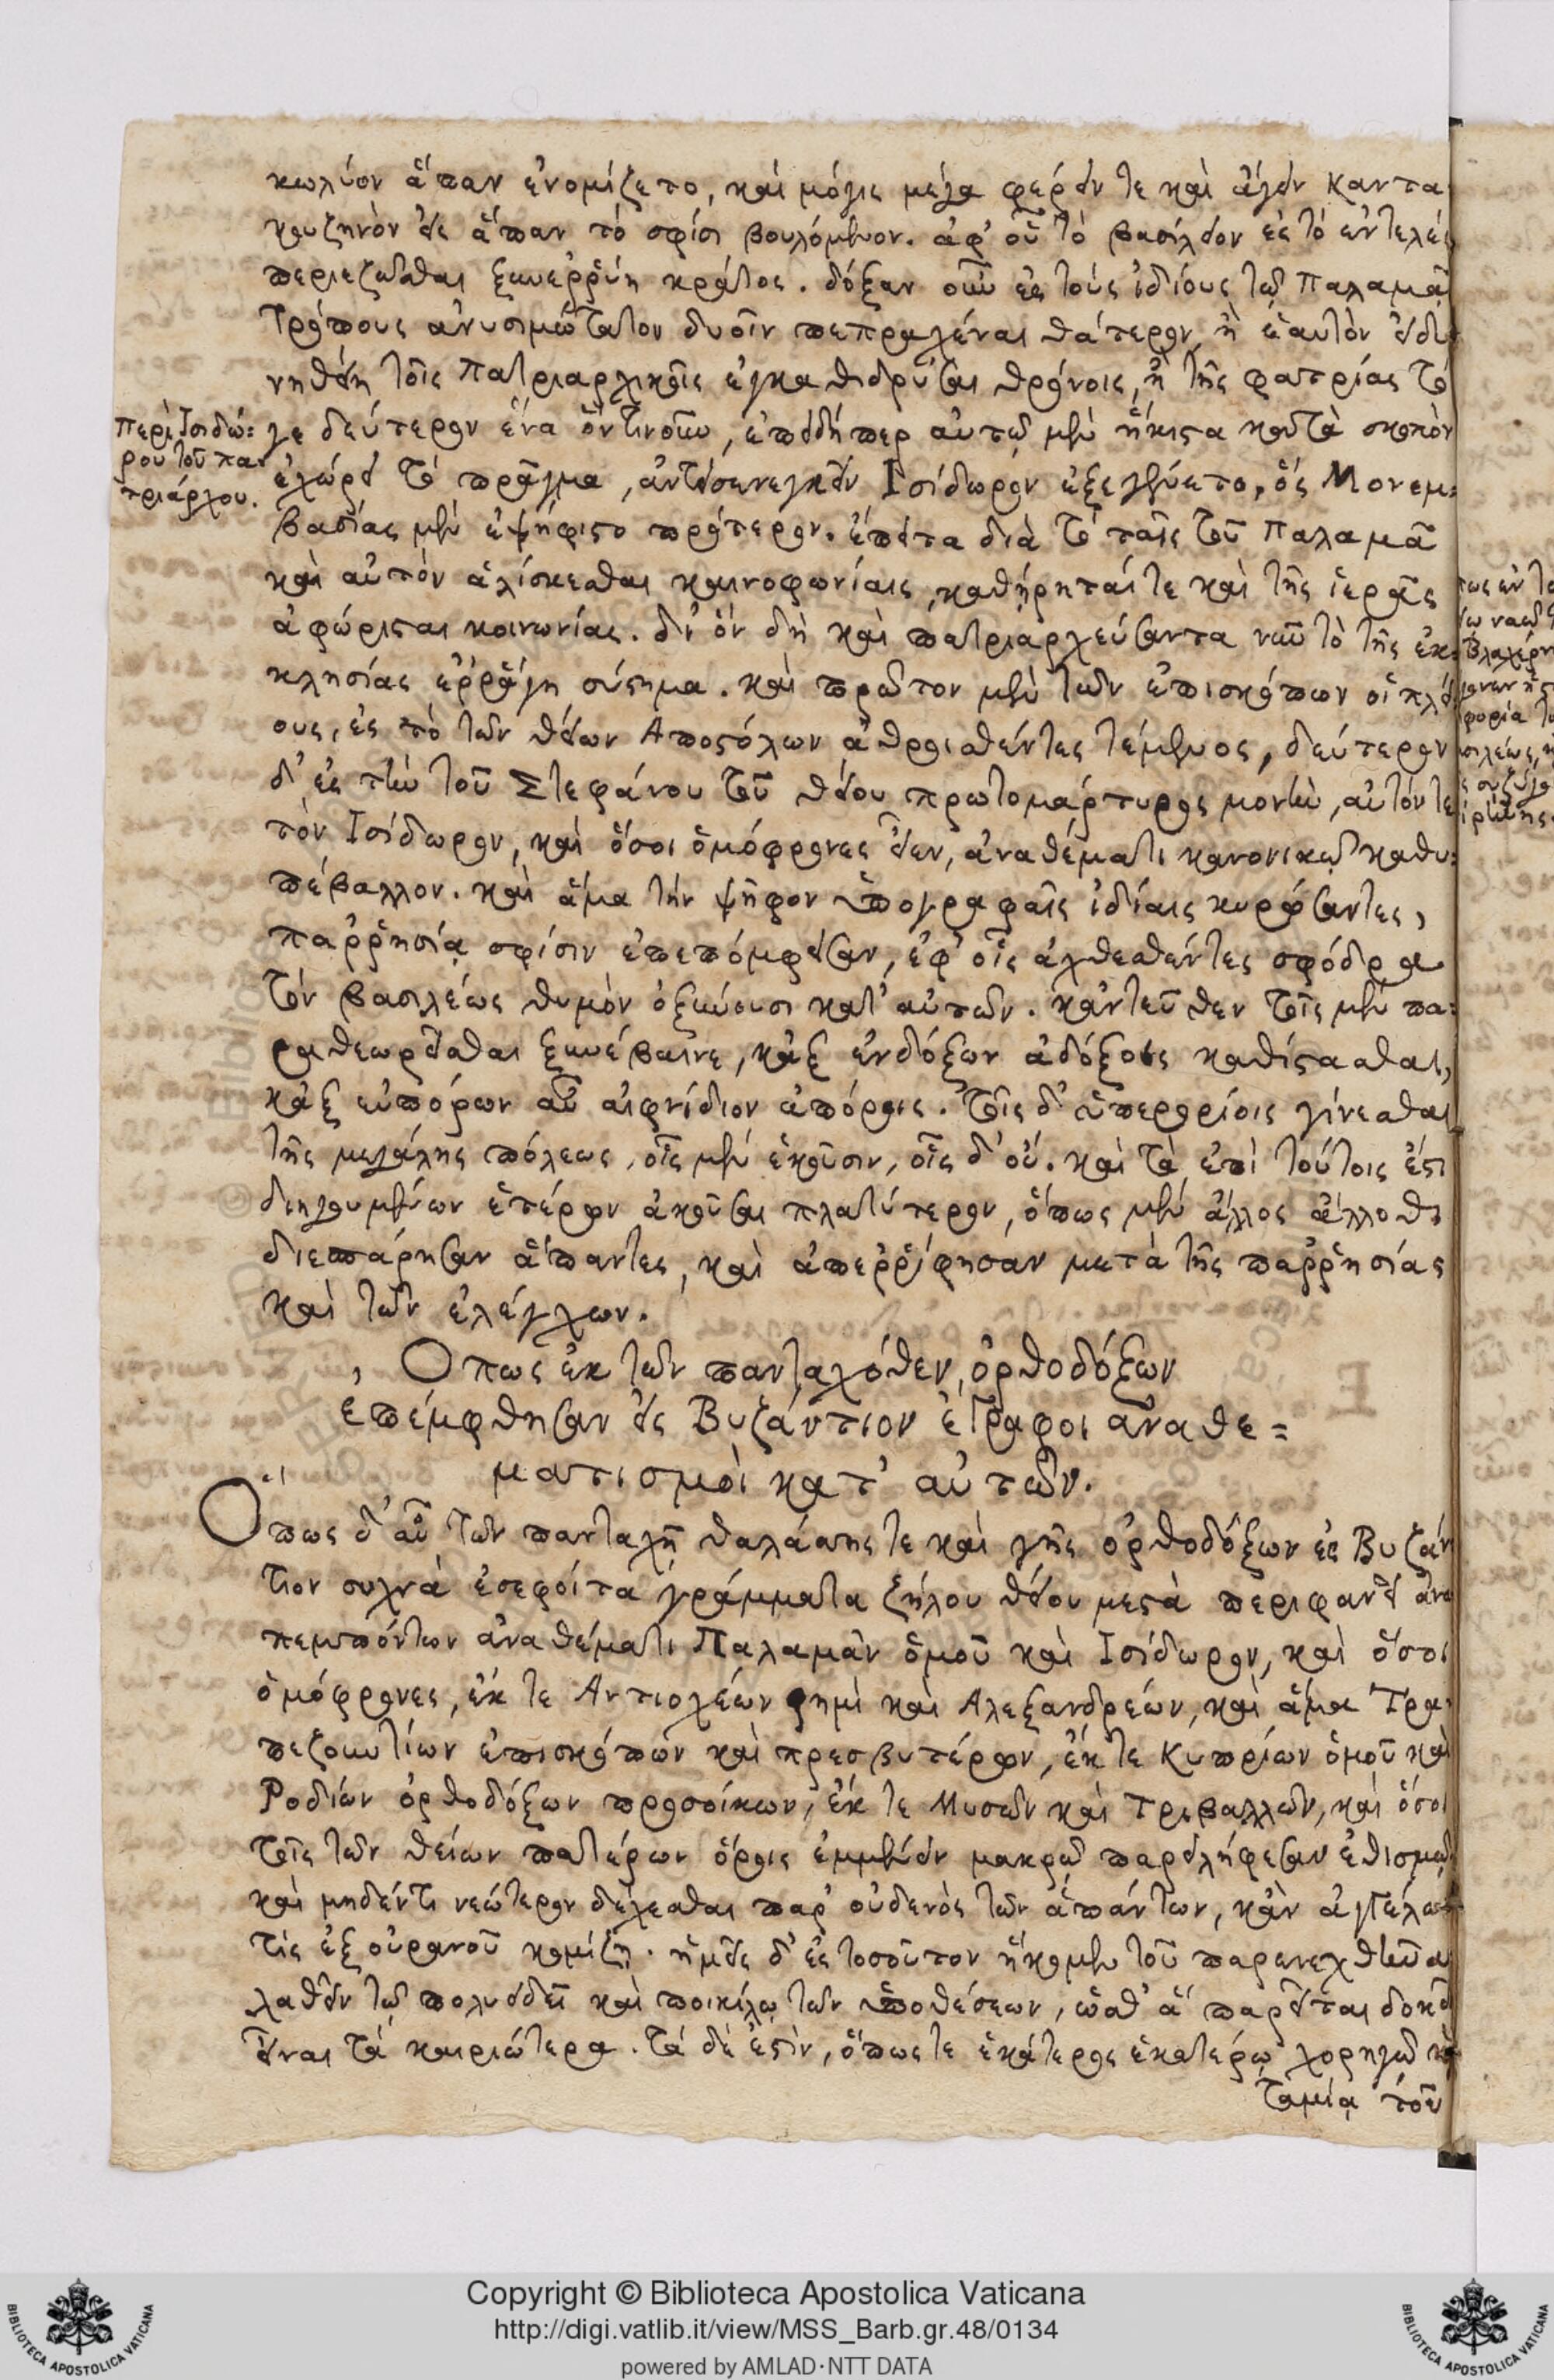 κωλύον ἅπαν ἐνομίζετο, καὶ μόγις μέγα φέρειν τε καὶ ἄγειν Καντα
κουζηνὸν εἰς ἅπαν τὸ σφίσι βουλόμενον. ἀφ' οὗ τὸ βασίλειον ἐς τὸ εὐτελὲς
περιεζῶσθαι ξυνερρύη κράτος. δόξαν οὖν ἐς τοὺς ἰδίους τῷ Παλαμᾷ
τρόπους ἀνυσιμώτατον δυοῖν πεπραχέναι θάτερον, ἢ ἑαυτὸν
τοῖς πατριαρχικοῖς ἐγκαθιδρῦσαι θρόνοις, ἢ τῆς φατρίας τό
Περὶ Ἰσιδώ=
ρου τοῦ πα=
τριάρχου.
γε δεύτερον ἕνα ὁντινοῦν, ἐπειδήπερ αὐτῷ μὲν ἥκιστα κατὰ σκοπὸν
ἐχώρει τὸ πρᾶγμα, ἀντεισενεγκεῖν Ἰσίδωρον ἐξεγένετο, ὃς Μονεμ=
βασίας μὲν ἐψήφιστο πρότερον. ἔπειτα διὰ τὸ ταῖς τοῦ Παλαμᾶ
καὶ αὐτὸν ἁλίσκεσθαι καινοφωνίαις, καθῄρηταί τε καὶ τῆς ἱερᾶς
ἀφώρισται κοινωνίας. δι' ὃν δὴ καὶ πατριαρχεύσαντα νῦν τὸ τῆς ἐκ=
κλησίας ἐρράγη σύστημα. καὶ πρῶτον μὲν τῶν ἐπισκόπων οἱ πλεί
ους, ἐς τὸ τῶν θείων Ἀποστόλων ἀθροισθέντες τέμενος, δεύτερον
δ' ἐς τὴν τοῦ Στεφάνου τοῦ θείου πρωτομάρτυρος μονὴν, αὐτόν τε
τὸν Ἰσίδωρον, καὶ ὅσοι ὁμόφρονες εἶεν, ἀναθέματι κανονικῷ καθυ=
πέβαλλον. καὶ ἅμα τὴν ψῆφον ὑπογραφαῖς ἰδίαις κυρώσαντες,
παρρησίᾳ σφίσιν ἐπεπόμφεισαν, ἐφ' οἷς ἀχθεσθέντες σφόδρα
τὸν βασιλέως θυμὸν ὀξύνουσι κατ' αὐτῶν. κἀντεῦθεν τοῖς μὲν πα=
ραθεωρεῖσθαι ξυνέβαινε, κἀξ ἐνδόξων ἀδόξοις καθίστασθαι,
κἀξ εὐπόρων αὖ αἰφνίδιον ἀπόροις. τοῖς δ' ὑπερορίοις γίνεσθαι
τῆς μεγάλης πόλεως, οἷς μὲν ἑκοῦσιν, οἷς δ' οὔ. καὶ τὰ ἐπὶ τούτοις ἔστι
διηγουμένων ἑτέρων ἀκοῦσαι πλατύτερον, ὅπως μὲν ἄλλος ἄλλοθι
διεσπάρησαν ἅπαντες, καὶ ἀπερρίφησαν μετὰ τῆς παρρησίας
καὶ τῶν ἐλέγχων.
Ὅπως ἐκ τῶν πανταχόθεν ὀρθοδόξων
ἐπέμφθησαν εἰς Βυζάντιον ἔγγραφοι ἀναθε=
ματισμοὶ κατ' αὐτῶν.
Ὅπως δ' αὖ τῶν πανταχῇ θαλάσσης τε καὶ γῆς ὀρθοδόξων ἐς Βυζάν
τιον συχνὰ ἐσεφοίτα γράμματα ζήλου θείου μεστὰ περιφανεῖ ἀνα
πεμπόντων ἀναθέματι Παλαμᾶν ὁμοῦ καὶ Ἰσίδωρον, καὶ ὅσοι
ὁμόφρονες, ἔκ τε Ἀντιοχέων φημὶ καὶ Ἀλεξανδρέων, καὶ ἅμα Τρα=
πεζουντίων ἐπισκόπων καὶ πρεσβυτέρων, ἔκ τε Κυπρίων ὁμοῦ καὶ
Ῥοδίων ὀρθοδόξων προσοίκων, ἔκ τε Μυσῶν καὶ Τριβαλλῶν, καὶ ὅσοι
τοῖς τῶν θείων πατέρων ὅροις ἐμμένειν μακρῷ παρειλήφεσαν ἐθισμῷ
καὶ μηδέν τι νεώτερον δέχεσθαι παρ' οὐδενὸς τῶν ἁπάντων, κἂν ἄγγελός
τις ἐξ οὐρανοῦ κομίζῃ. ἡμεῖς δ' ἐς τοσοῦτον ἥκομεν τοῦ παρενεχθῆναι
λαθεῖν τῷ πολυειδεῖ καὶ ποικίλῳ τῶν ὑποθέσεων, ὥσθ' ἃ παρεῖται δοκεῖ
εἶναι τὰ καιριώτερα. τὰ δέ ἐστιν, ὅπως τε ἑκάτερος ἑκατέρῳ χορηγῷ καὶ
ταμίᾳ τοῦ
Copyright © Biblioteca Apostolica Vaticana
http://digi.vatlib.it/view/MSS_Barb.gr.48/0134
powered by AMLAD·NTT DATA
BIBLIOTECA APOSTOLICA VATICANA
BIBLIOTECA APOSTOLICA VATICANA